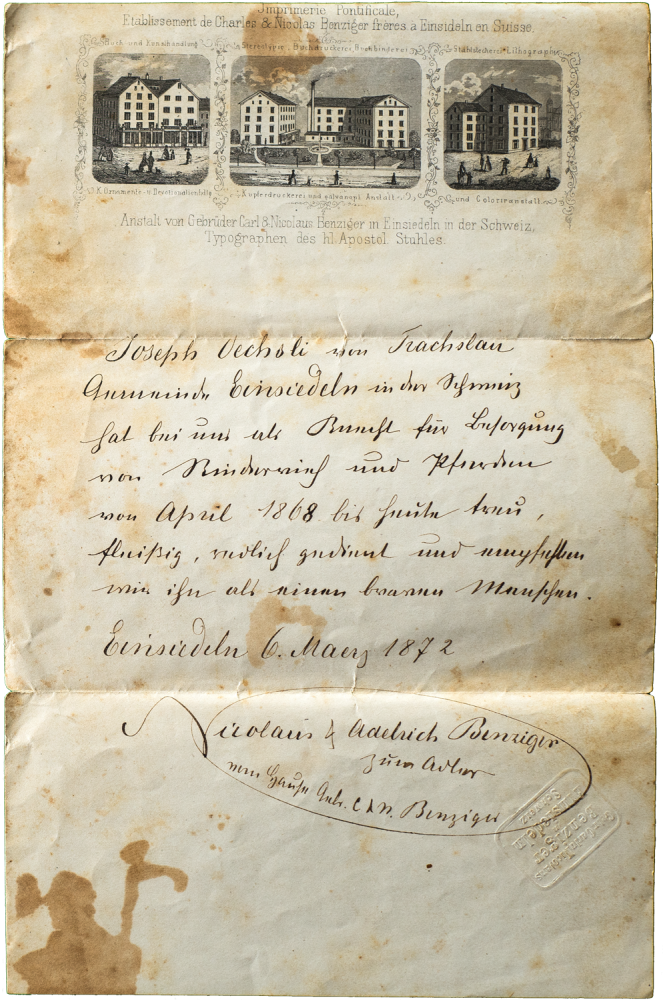 Imprimerie Pontificale,
Etablissement de Charles & Nicolas Benziger frères à Einsideln en Suisse.
Buch und Kunsthandlung
Stereotypie, Buchdruckerei, Buchbinderei
Stahlstecherei Lithographie
K. Ornamente- u. Devotionalienhdlg
Kupferdruckerei und galvanopl. Anstalt
und Coloriranstalt
Anstalt von Gebrüder Carl & Nicolaus Benziger in Einsiedeln in der Schweiz,
Typographen des hl. Apostol. Stuhles.
Joseph Oechsli von Trachslau
Gemeinde Einsiedeln in der Schweiz
hat bei uns als Knecht für Besorgung
von Rindervieh und Pferden
von April 1868 bis heute treu,
fleißig, redlich gedient und empfehlen
wir ihn als einen braven Menschen.
Einsiedeln 6. Maerz 1872
Nicolaus & Adelrich Benziger
zum Adler
vom Hause Gebr. C & N. Benziger
Benziger
Einsiedeln
Schweiz